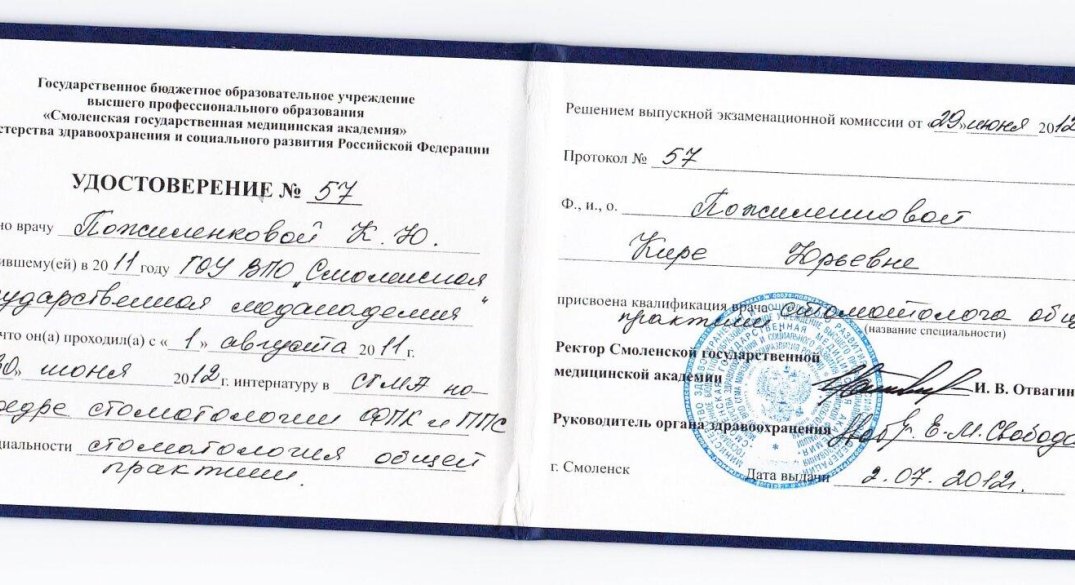 Государственное бюджетное образовательное учреждение
высшего профессионального образования
«Смоленская государственная медицинская академия»
стерства здравоохранения и социального развития Российской Федерации
УДОСТОВЕРЕНИЕ № 57
но врачу Пожиленковой К. Ю.
ившему(ей) в 2011 году ГОУ ВПО „Смоленская
сударственная медакадемия"
что он(а) проходил(а) с «1» августа 2011 г.
30» июня 2012 г. интернатуру в СГМА ка-
федре стоматологии ФПК и ППС
циальности стоматология общей
практики.
Решением выпускной экзаменационной комиссии от 29 «июня 2012
Протокол № 57
Ф., и., о. Пожиленковой
Кире Юрьевне
присвоена квалификация врача стоматолога общ
практики
(название специальности)
Ректор Смоленской государственной
медицинской академии И. В. Отвагин
Руководитель органа здравоохранения Е.М. Свобода
г. Смоленск Дата выдачи 2.07.2012г.